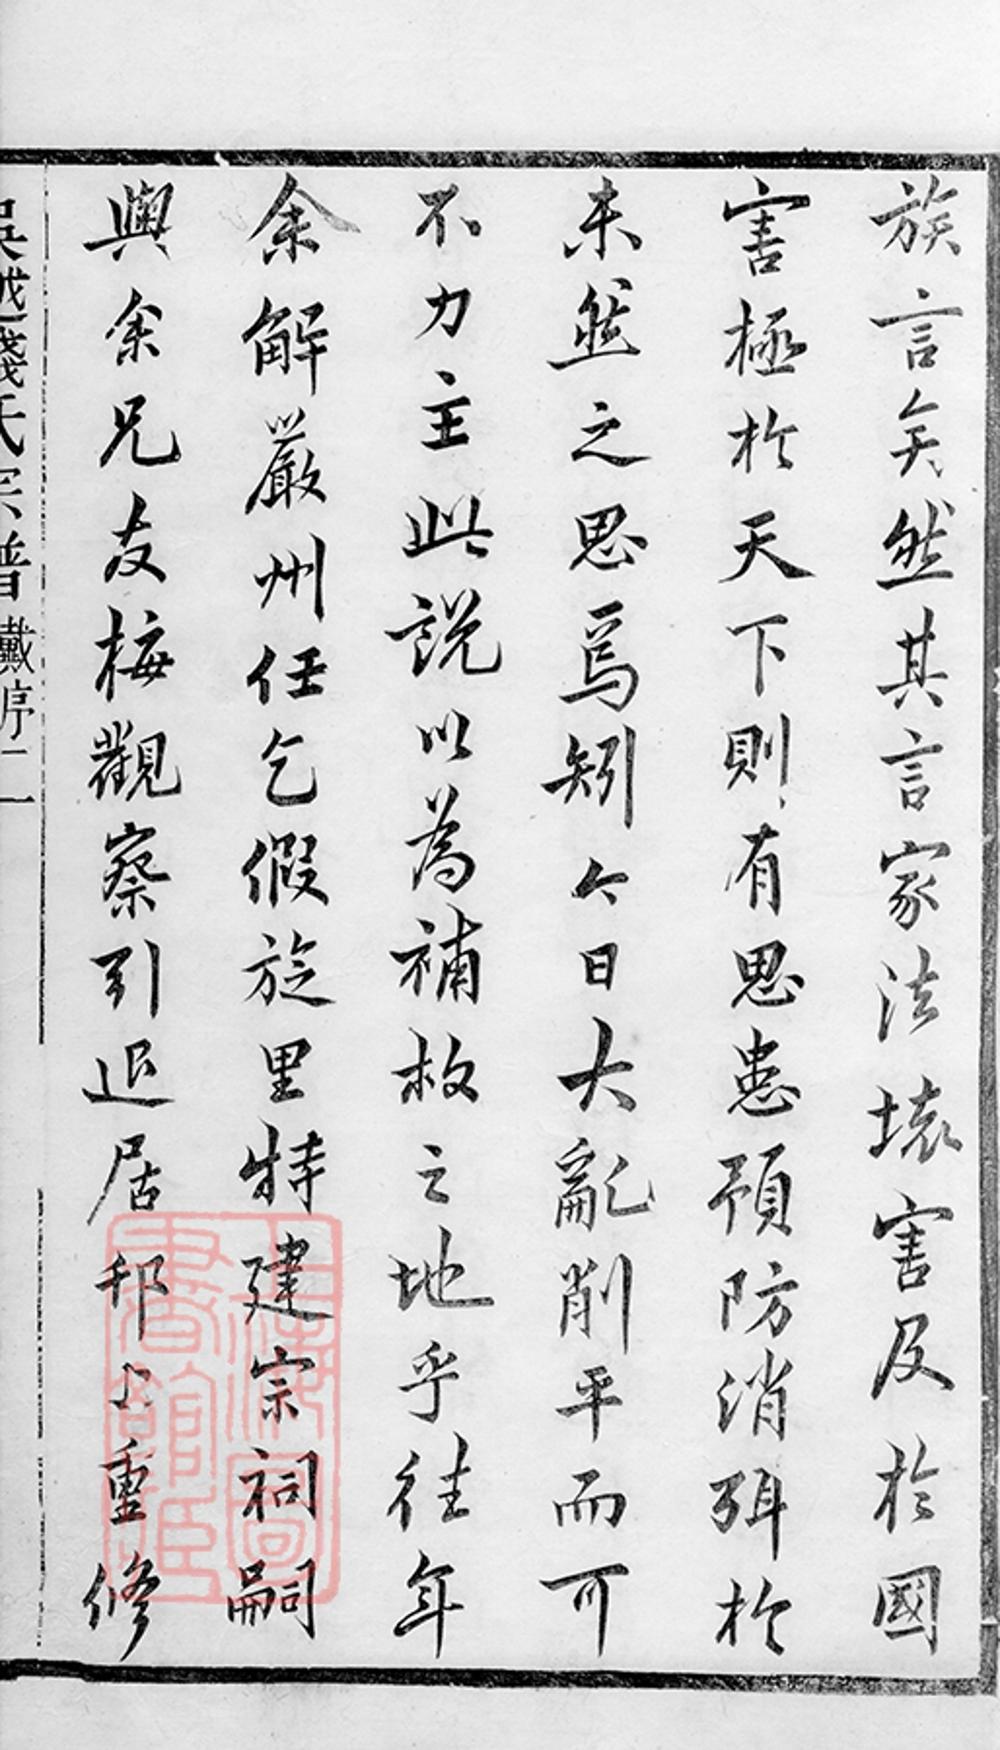 族言矣然其言家法壞害及於國
害極於天下則有思患預防消弭於
未然之思焉矧今日大亂削平而可
不力主此說以為補救之地乎往年
余解嚴州任乞假旋里特建宗祠嗣
與余兄友梅觀察引退居邗上重修
吳越錢氏宗譜 戴序 二